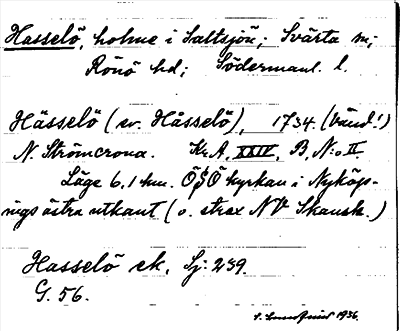 Hasselö, holme i Saltsjön; Svärta sn;
Rönö hd; Södermanl. l.
Hässelö (ev. Håsselö), 1734. (Vänd!)
N. Strömcrona. Kr.A. XXIV, B, N:o II.
Läge 6,1 km. ÖSÖ kyrkan i Nyköp-
ings östra utkant (o. strax NV Skansh.)
Hasselö ek. Sj: 239.
G. 56.
1936.